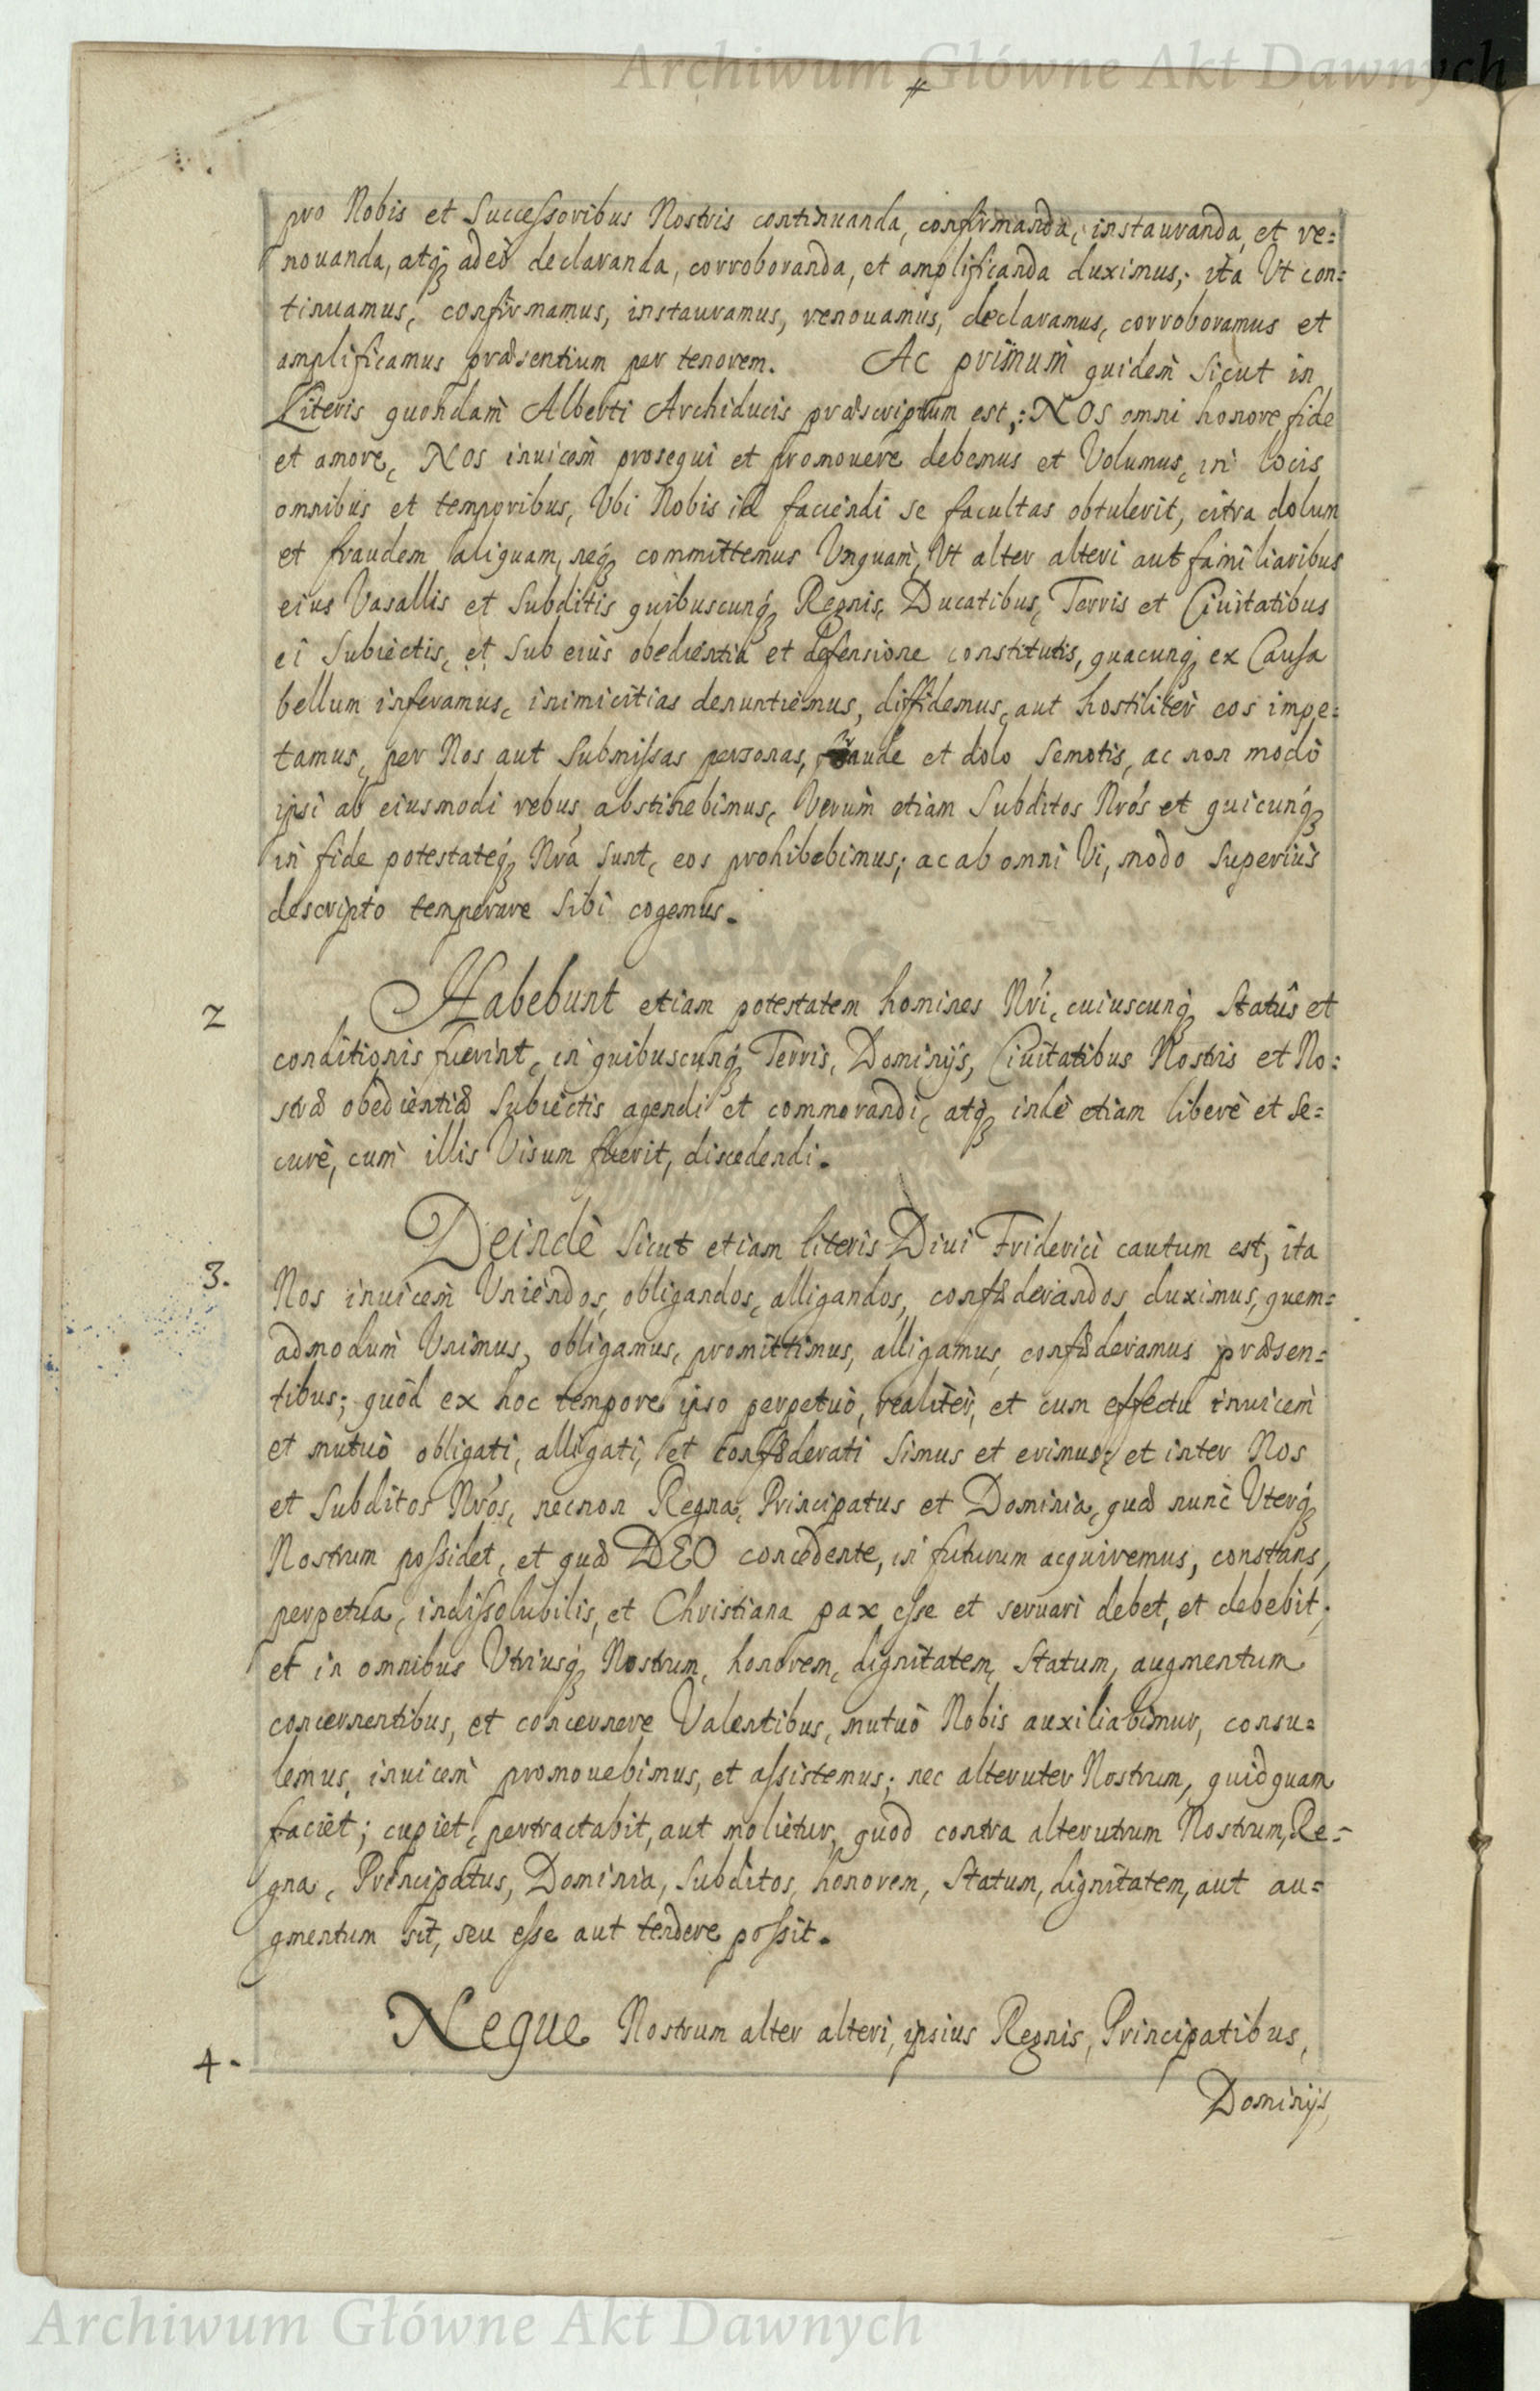 Archiwum Główne Akt Dawnych
#
pro Nobis et Successoribus Nostris continuanda, confirmanda, instauranda, et re=
nouanda, atq̨ adeò declaranda, corroboranda, et amplificanda duximus; ita Vt con=
tinuamus, confirmamus, instauramus, renouamus, declaramus, corroboramus et
amplificamus præsentium per tenorem. Ac primùm quidem sicut in
Literis quondam Alberti Archiducis præscriptum est,: NOS omni honore, fide
et amore, NOS inuicem prosequi et promouere debemus et Volumus, in locis
omnibus et temporibus, Vbi Nobis id faciendi se facultas obtulerit, citra dolum
et fraudem aliquam, neq̨ committemus Vnquam, Vt alter alteri aut familiaribus
eius Vasallis et Subditis quibuscunq̨ Regnis, Ducatibus, Terris et Ciuitatibus
ei Subiectis, et sub eius obedientia et defensione constitutis, quacunq̨ ex Causa
bellum inferamus, inimicitias denuntiemus, diffidemus, aut hostiliter eos impe=
tamus, per Nos aut submissas personas, fraude et dolo semotis, ac non modò
ipsi ab eiusmodi rebus abstinebimus, Verùm etiam Subditos Nr̃os et quicunq̨
in fide potestateq̨ Nr̃a sunt, eos prohibebimus; ac ab omni Vi, modo superiùs
descripto temperare sibi cogemus.
2
Habebunt etiam potestatem homines Nr̃i, cuiuscunq̨ Statûs et
conditionis fuerint, in quibuscunq̨ Terris, Dominijs, Ciuitatibus Nostris et No=
stræ obedientiæ Subiectis agendi et commorandi, atq̨ indè etiam liberè et se=
curè, cùm illis Visum fuerit, discedendi.
3.
Deindè sicut etiam literis Diui Friderici cautum est, ita
Nos inuicem Vniendos, obligandos, alligandos, confœderandos duximus, quem=
admodum Vnimus, obligamus, promittimus, alligamus, confœderamus præsen=
tibus; quòd ex hoc tempore ipso perpetuò, realiter, et cum effectu inuicem
et mutuò obligati, alligati, et confœderati simus et erimus; et inter Nos
et Subditos Nr̃os, necnon Regna, Principatus et Dominia, quæ nunc Vterq̨
Nostrum possidet, et quæ DEO concedente, in futurum acquiremus, constans,
perpetua, indissolubilis, et Christiana pax esse et seruari debet, et debebit;
et in omnibus Vtriusq̨ Nostrum, honorem, dignitatem, statum, augmentum
concernentibus, et concernere Valentibus, mutuò Nobis auxiliabimur, consu=
lemus, inuicem promouebimus, et assistemus; nec alteruter Nostrum, quidquam
faciet; cupiet, pertractabit, aut molietur, quod contra alterutrum Nostrum, Re=
gna, Principatus, Dominia, Subditos, honorem, Statum, dignitatem, aut au=
gmentum sit, seu esse aut tendere possit.
4.
Neque Nostrum alter alteri, ipsius Regnis, Principatibus,
Dominijs,
Archiwum Główne Akt Dawnych